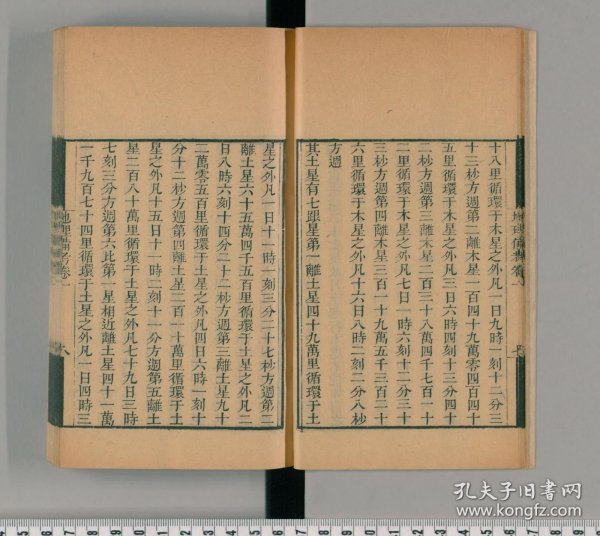 十八里循環于木星之外凡一日九時一刻十二分三
十三秒方週第二離木星一百四十九萬零四百四十
五里循環于木星之外凡三日六時四刻十三分四十
二秒方週第三離木星二百三十八萬四千七百一十
二里循環于木星之外凡七日一時六刻十二分三十
三秒方週第四離木星三百一十九萬五千三百二十
六里循環于木星之外凡十六日八時二刻二分八秒
方週
其土星有七跟星第一離土星四十九萬里循環于土
七
星之外凡一日十一時一刻三分二十七秒方週第二
離土星六十五萬四千五百里循環于土星之外凡二
日八時六刻十四分二十二秒方週第三離土星九十
二萬零五百里循環于土星之外凡四日六時一刻十
分十二秒方週第四離土星二百一十萬里循環于土
星之外凡十五日十一時二刻十一分方週第五離土
星二百八十萬里循環于土星之外凡七十九日三時
七刻三分方週第六比第一星相近離土星四十一萬
一千九百七十四里循環于土星之外凡一日四時三
地理備考卷一
八
孔夫子旧书网
www.kongfz.com